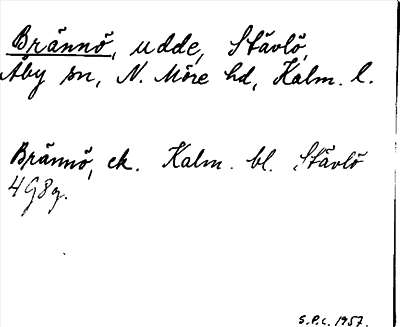 Brännö, udde, Stävlö,
Åby sn, N. Möre hd, Kalm. l.
Brännö, ek. Kalm. bl. Stävlö
4G8g.
S.P.C. 1957.